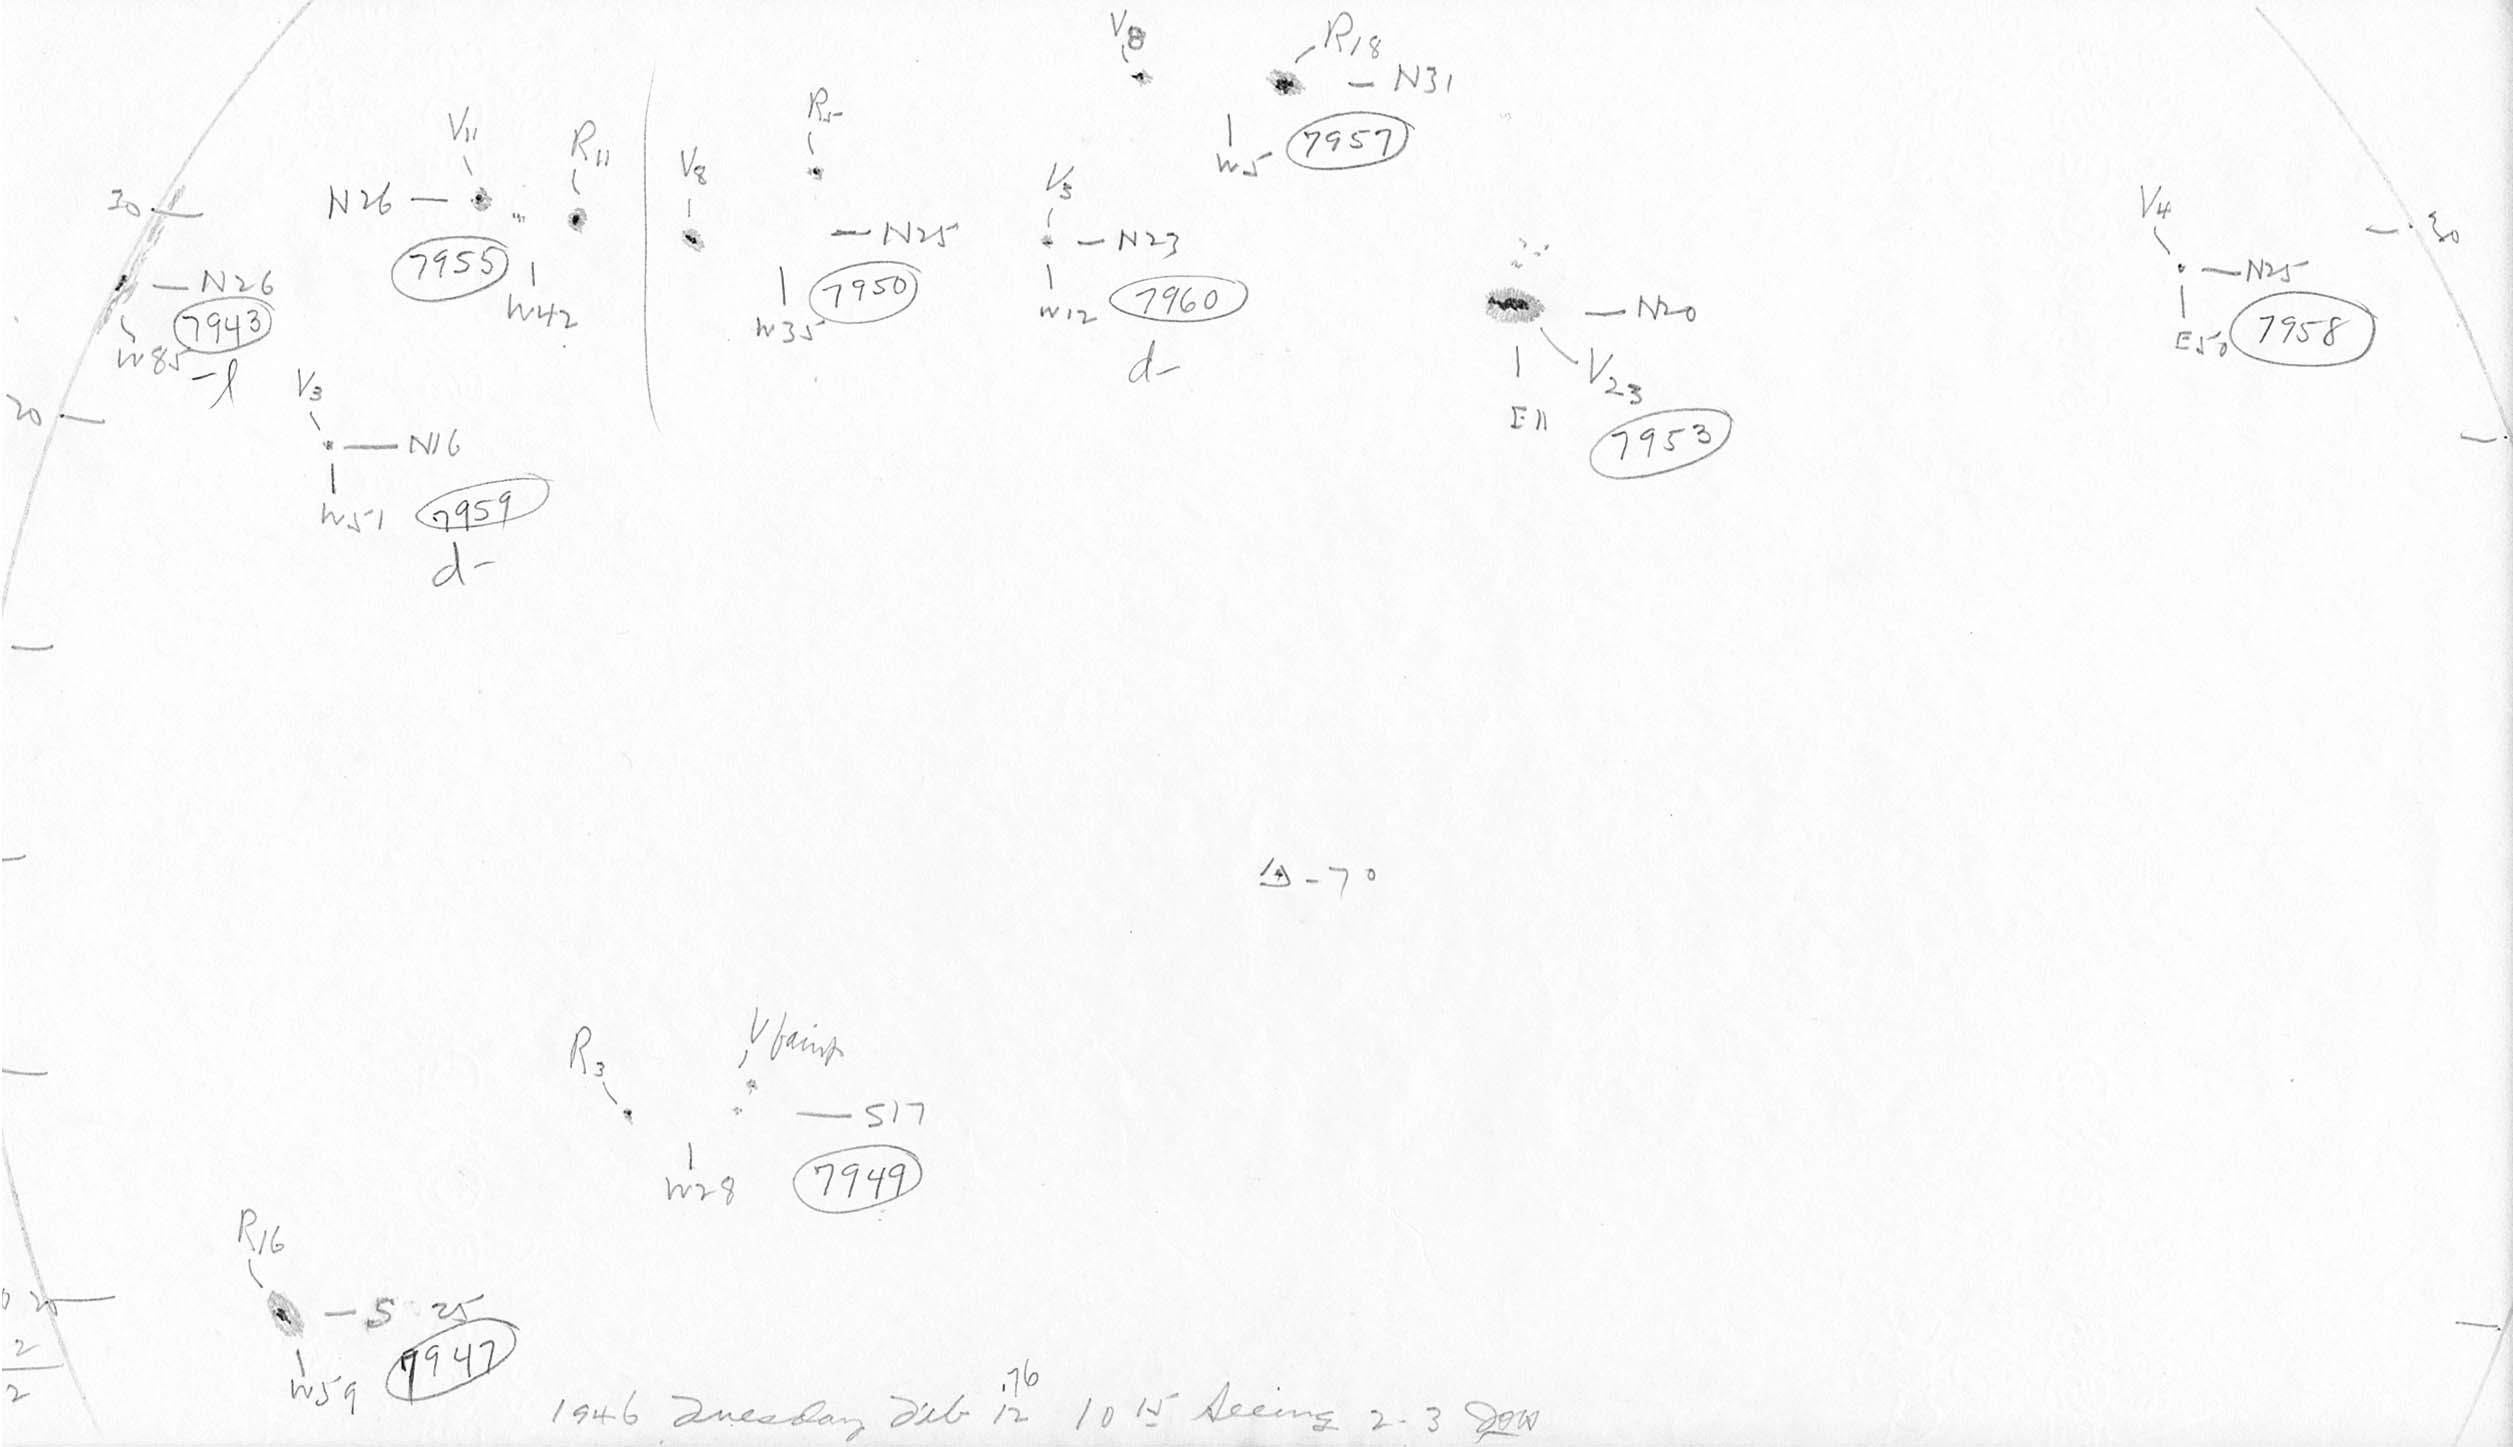 V8
R18
- N31
W5
7957
V11
R11
N26 -
7955
W42
V8
R5
- N25
W35
7950
V5
- N23
W12
7960
d-
30
- N26
7943
W85
-l
20
V3
- N16
W51
7959
d-
- N20
V23
E11
7953
V4
- N25
E50
7958
30
-7°
R3
V faint
- S17
W28
7949
R16
- S 25
W59
7947
20
2
2
.76
1946 Tuesday Feb 12 10 15 Seeing 2-3